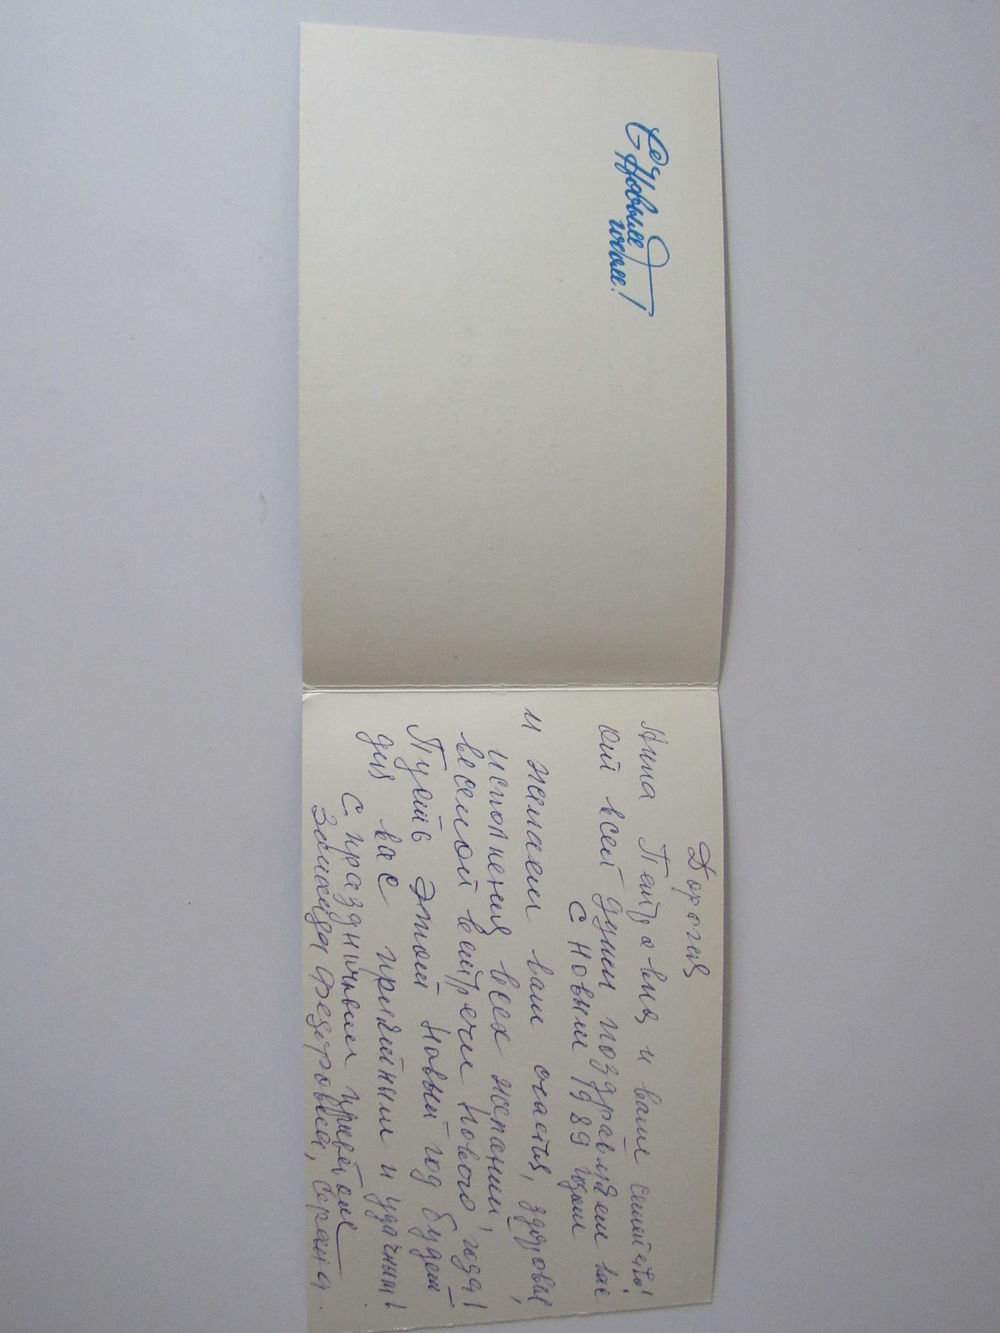 С Новым
годом!
Дорогая
Нина Петровна и ваше семейство!
От всей души поздравляем вас
С Новым 1989 годом
и желаем вам счастия, здоровия,
исполнения всех желаний,
веселой встречи Нового года!
Пусть этот Новый год будет
для вас приятным и удачным!
С праздничным приветом
Федоровна,